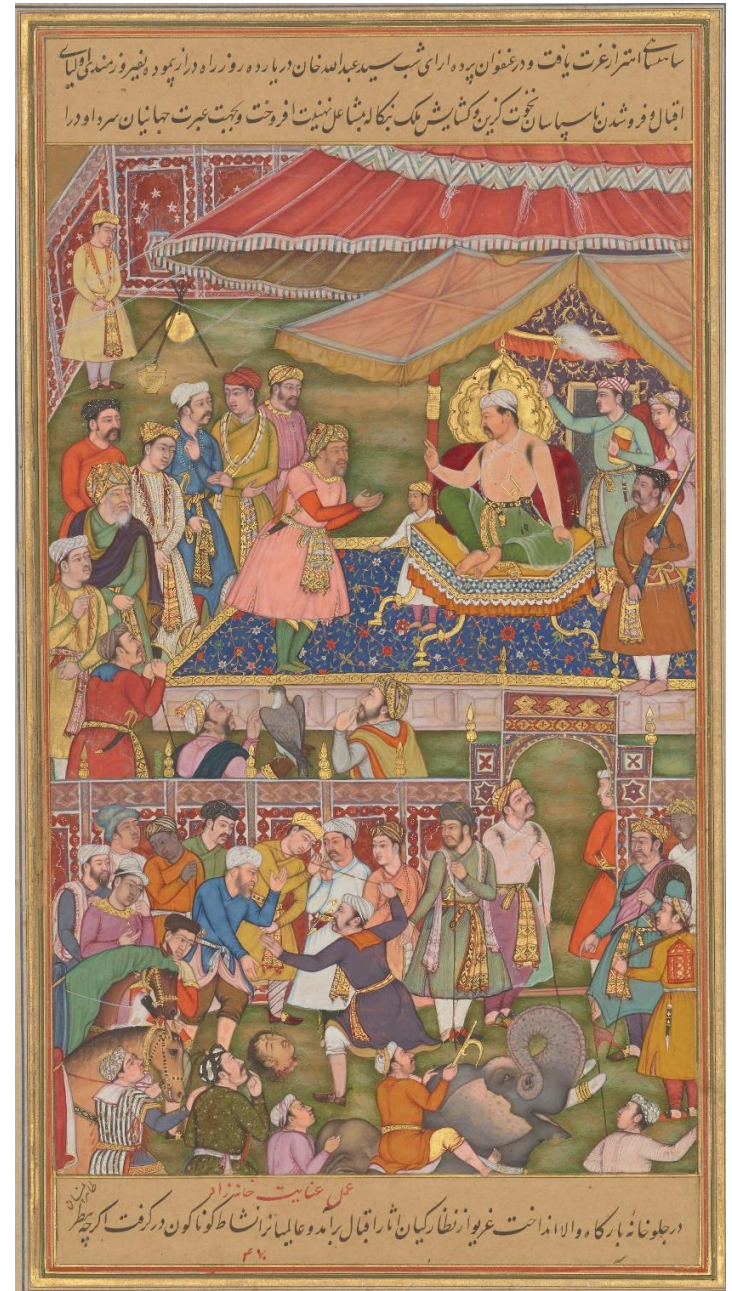 اهتزاز عزت یافت و در عنفوان پرده آرای شب سید عبدالله خان در یازده روز راه دراز پیموده بفیروزمندی اولیای
اقبال و فروشدن ناسپاسان نخوت گزین و کشایش ملک بنکاله مشاعل تهنیت افروخت و بجهت عبرت جهانیان سر داود را
عمل عنایت خانه‌زاد
در جلوخانهٔ بارکاه والا انداخت غریو از نظارکیان اثار اقبال برآمد و عالمیانرا نشاط کوناکون در کرفت اکرچه